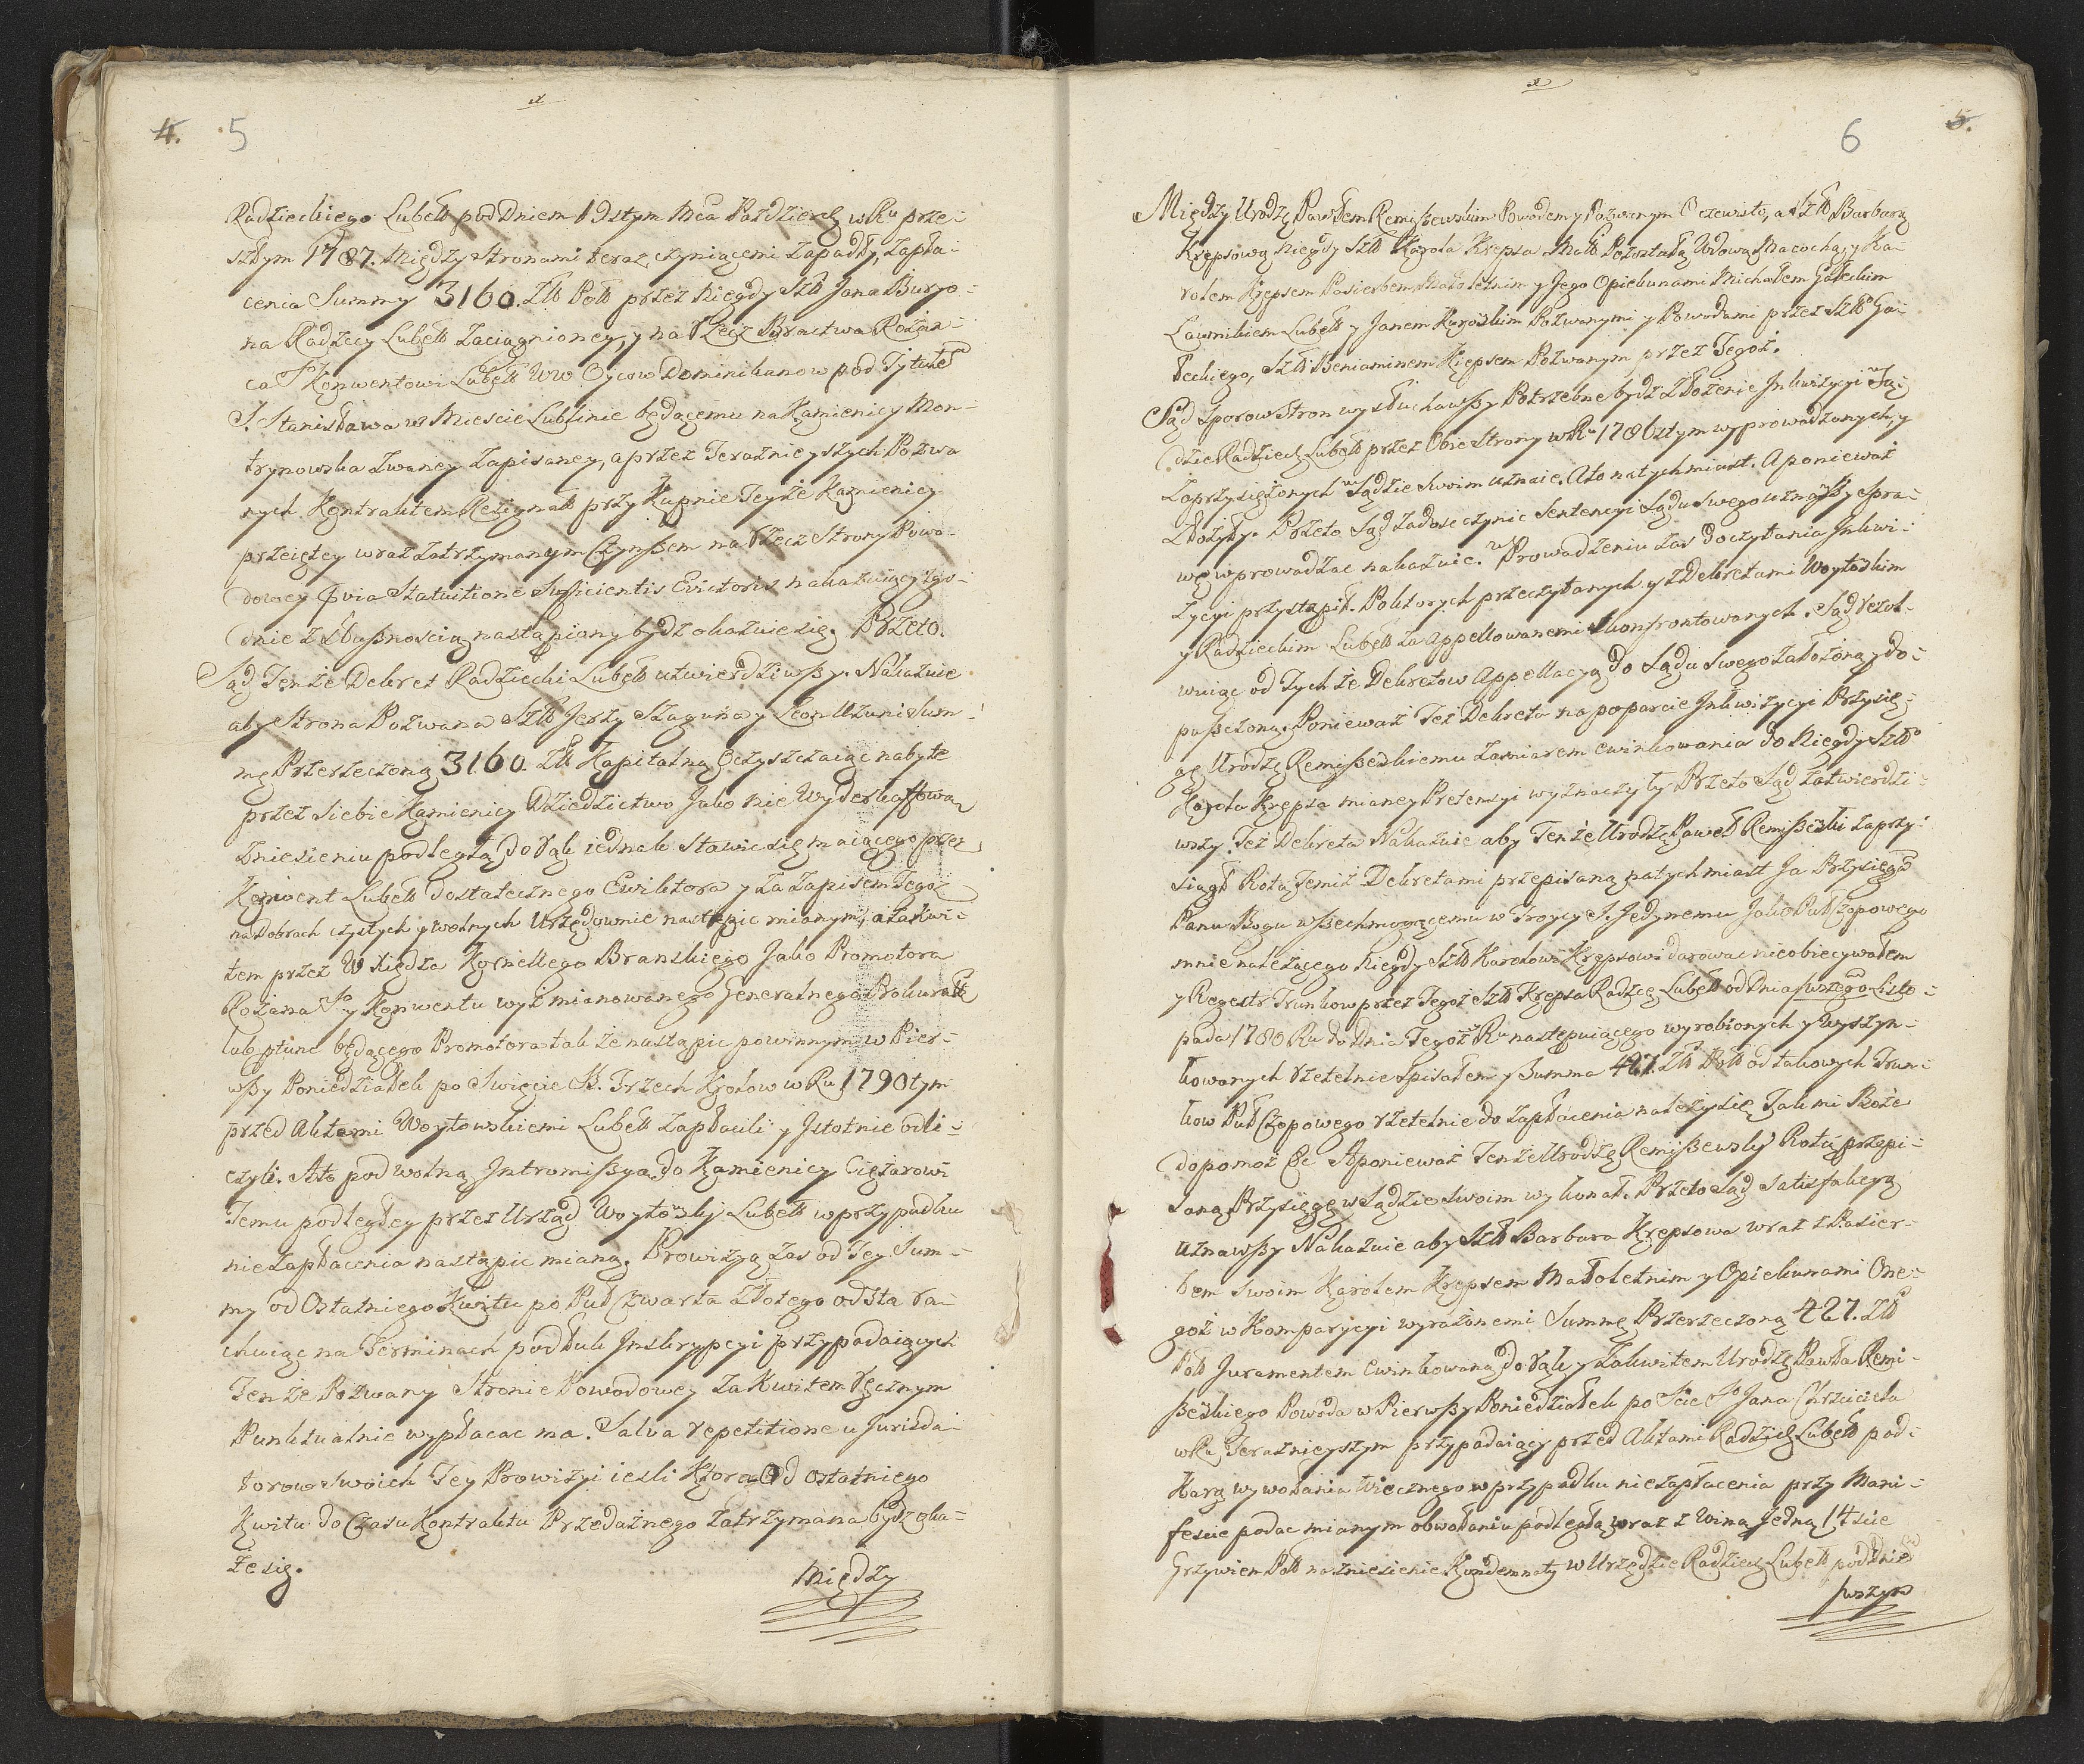 4. 5
Radzieckiego Lubelt pod Dniem 19stym Mca Pazdzierk w Ru prze-
szłym 1787. między Stronami teraz czyniącemi zapadły, zapła-
cenia Summy 3160. Złt Polt przez niegdy Szlt Jana Buryo-
na Radzcy Lubelt zaciągnioney, y na Rzecz Bractwa Rożan-
ca So Konwentowi Lubelt WW Oycow Dominikanow pod Tytułem
S. Stanisława w Miescie Lublinie będącemu na Kamienicy Mon-
trynowska zwaney zapisaney, a przez Teraznieyszych Pozwa
nych Kontraktem Rezignalt przy Kupnie Teyże Kamienicy
przeiętey wraz zatrzymanym Czynszem na Rzecz Strony Powo-
dowey Qvia Statuitione Sufficientis Evictoris nakazuiący zgo-
dnie z słusznoscią nastąpiony bydz okazuie się. Przeto.
Sąd Tenże Dekret Radziecki Lubelt utwierdziwszy. Nakazuie
aby Strona Pozwana Szlt Jerzy Szaguna y Leon Uzuni Sum-
mę Przerzeczoną 3160. Złt Kapitalną Oczyszczaiąc nabyte
przez siebie Kamienicy Dziedzictwo Jako nie Wyderkaffową
zniesieniu podległą do Rąk iednak stawic się maiącego przez
Konwent Lubelt dostatecznego Ewiktora y za zapisem Tegoż
na dobrach czystych y wolnych Urzędownie nastąpic mianym, a za kwi-
tem przez W Xiędza Kornellego Branskiego Jako Promotora
Rożana So y Konwentu wyż mianowanego Generalnego Prokurat
lub ptunc będącego Promotora tak że nastąpic powinnym w Pier-
wszy Poniedziałek po Swięcie SS. Trzech Krolow w Ru 1790tym
przed Aktami Woytowskiemi Lubelt zapłacili y Jstotnie odli-
czyli. A to pod wolną Jntromissyą do Kamienicy Ciężarowi
Temu podległey przez Urząd Woytowskj Lubelt w przypadku
niezapłacenia nastąpic mianą. Prowizyą zas od Tey Sum-
my od Ostatniego Kwitu po Puł Czwarta złotego od sta ra-
chuiąc na Terminach podług Jnskrypcyi przypadaiących
Tenże Pozwany Stronie Powodowey za Kwitem ręcznym
Punktualnie wypłacac ma. Salva repetitione u Jurizda-
torow swoich Tey Prowizyi iesli Ktora Od Ostatniego
Kwitu do Czasu Kontraktu Przedażnego zatrzymana bydz oka-
że się.
Między
6 5.
Między Urodz Pawłem Remiszewskim Powodem y Pozwanym Oczewisto, a Szlt Barbarą
Krępsową niegdy Szlt Karola Krepsa Małż Pozostałą Wdową Macochą, y Ka-
rolem Krępsem Pasierbem Małoletnim y Jego Opiekunami Michałem Gałeckim
Ławnikiem Lubelt y Janem Kuroskim Pozwanymi y Powodami przez Szlto Ga-
łeckiego, Szlt Beniaminem Krępsem Pozwanym przez Tegoż.
Sąd Sporow Stron wysłuchawszy Potrzebne bydz złożenie Jnkwizycyi w Są-
dzie Radzieck Lubelt przez Obie Strony w Ru 1786stym wyprowadzonych, y
zaprzysiężonych w Sądzie Swoim uznaie. A to natychmiast. A poniewaz
złożyły. Przeto Sąd zadosc czynic Sentencyi Sądu Swego uznawszy Spra-
wę wprowadzac nakazuie. w Prowadzeniu zas do czytania Jnkwi-
zycyi przystąpił. Poktorych przeczytanych y z Dekretami Woytoskim
y Radzieckim Lubelt zaappellowanemi skonfrontowanych. Sąd rezol-
wuiąc od tychże Dekretow Appellacyą do Sądu Swego założoną y do-
puszczoną. Poniewaz Też Dekreta na poparcie Jnkwizycyi Przysię-
gę Urodz Remiszeskiemu zamiarem ewinkowania do niegdy Szlto
Karola Krępsa mianey Pretensyi wyznaczyły Przeto Sąd zatwierdzi-
wszy. Też Dekreta Nakazuie aby Tenże Urodz Paweł Remiszeski zaprzy-
siągł Rotą Temiż Dekretami przepisaną natychmiast Ja Przysięgam
Panu Bogu wszechmogącemu w Troycy S. Jedynemu Jako Puł Czopowego
mnie należącego niegdy Szlt Karolowi Krępsowi darowac nie obiecywałem
y Regestr Trunkow przez Tegoż Szlt Krępsa Radzcę Lubelt od Dnia 1wszego Listo-
pada 1780 Ru do Dnia Tegoż Ru następuiącego wyrobionych y wyszyn-
kowanych rzetelnie Spisałem y Summa 427. Złt Polt od takowych Trun-
kow Puł Czopowego rzetelnie do zapłacenia należy się Tak mi Boże
dopomoż &c A poniewaz Tenże Urodz Remiszewskj Rotą przepi-
saną Przysięgę w Sądzie Swoim wykonał. Przeto Sąd Satisfakcyą
uznawszy Nakazuie aby Szlt Barbara Krępsowa wraz z Pasier-
bem swoim Karolem Krępsem Małoletnim y Opiekunami One-
goż w Komparycyi wyrażonemi Summę Przerzeczoną 427. Złt
Polt Juramentem ewinkowaną do Rąk y za kwitem Urodz Pawła Remi-
szeskiego Powoda w Pierwszy Poniedziałek po Scie So Jana Chrzciciela
w Ru Teraznieyszym przypadaiący przed Aktami Radzieck Lubelt pod
Karą wywołania Wiecznego w przypadku niezapłacenia przy Mani-
fescie podac mianym obwołaniu podległą wraz z Winą Jedną 14scie
Grzywien Polt na zniesienie Kondemnaty w Urzędzie Radzieck Lubelt pod Dniem
1wszym